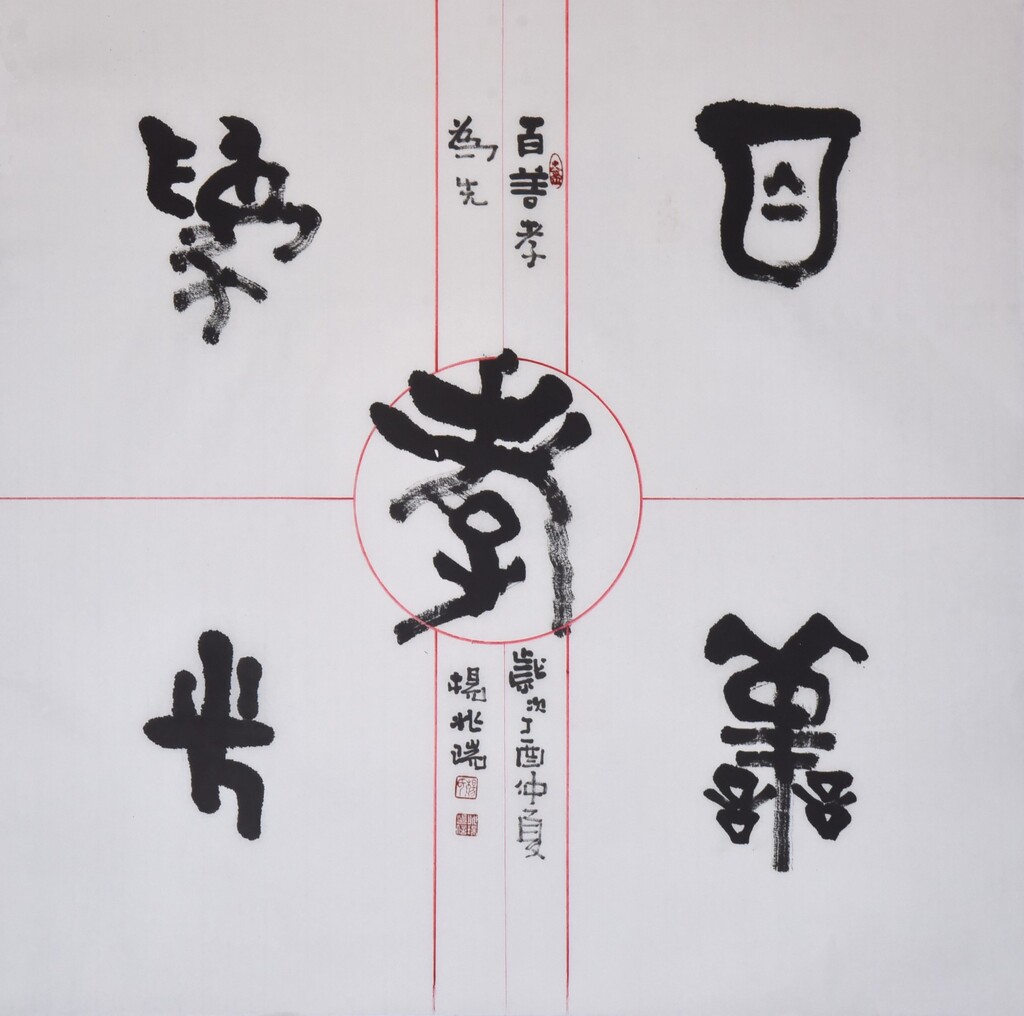 百
善
孝
為
先
百善孝
為先
歲次丁酉仲夏
楊兆瑞